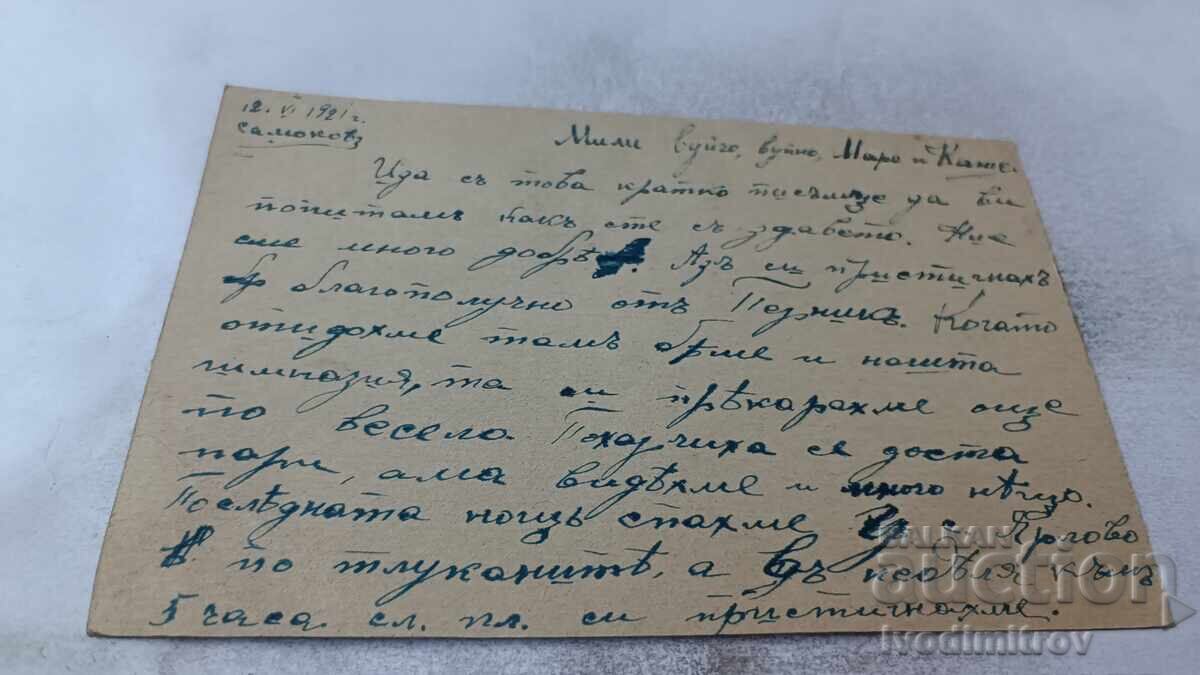 12. VI 1921 г.
Самоковъ
Мили вуйчо, вуйно, Маро и
Ида съ това кратко писъмце да ви
попитамъ какъ сте съ здравето. Ние
сме много добрѣ. Азъ си пристигнахъ
благополучно отъ Перникъ. Когато
отидохме тамъ бѣше и нашта
гимназия, та си прѣкарахме още
по весело. Похарчиха се доста
пари, ама видѣхме и много нѣщо.
Послѣдната нощъ спахме с. Ярлово
по тлуканитѣ, а въ неделя къмъ
5 часа сл. пл. си пристигнахме.
BALKAN
auction
ivodimitrov